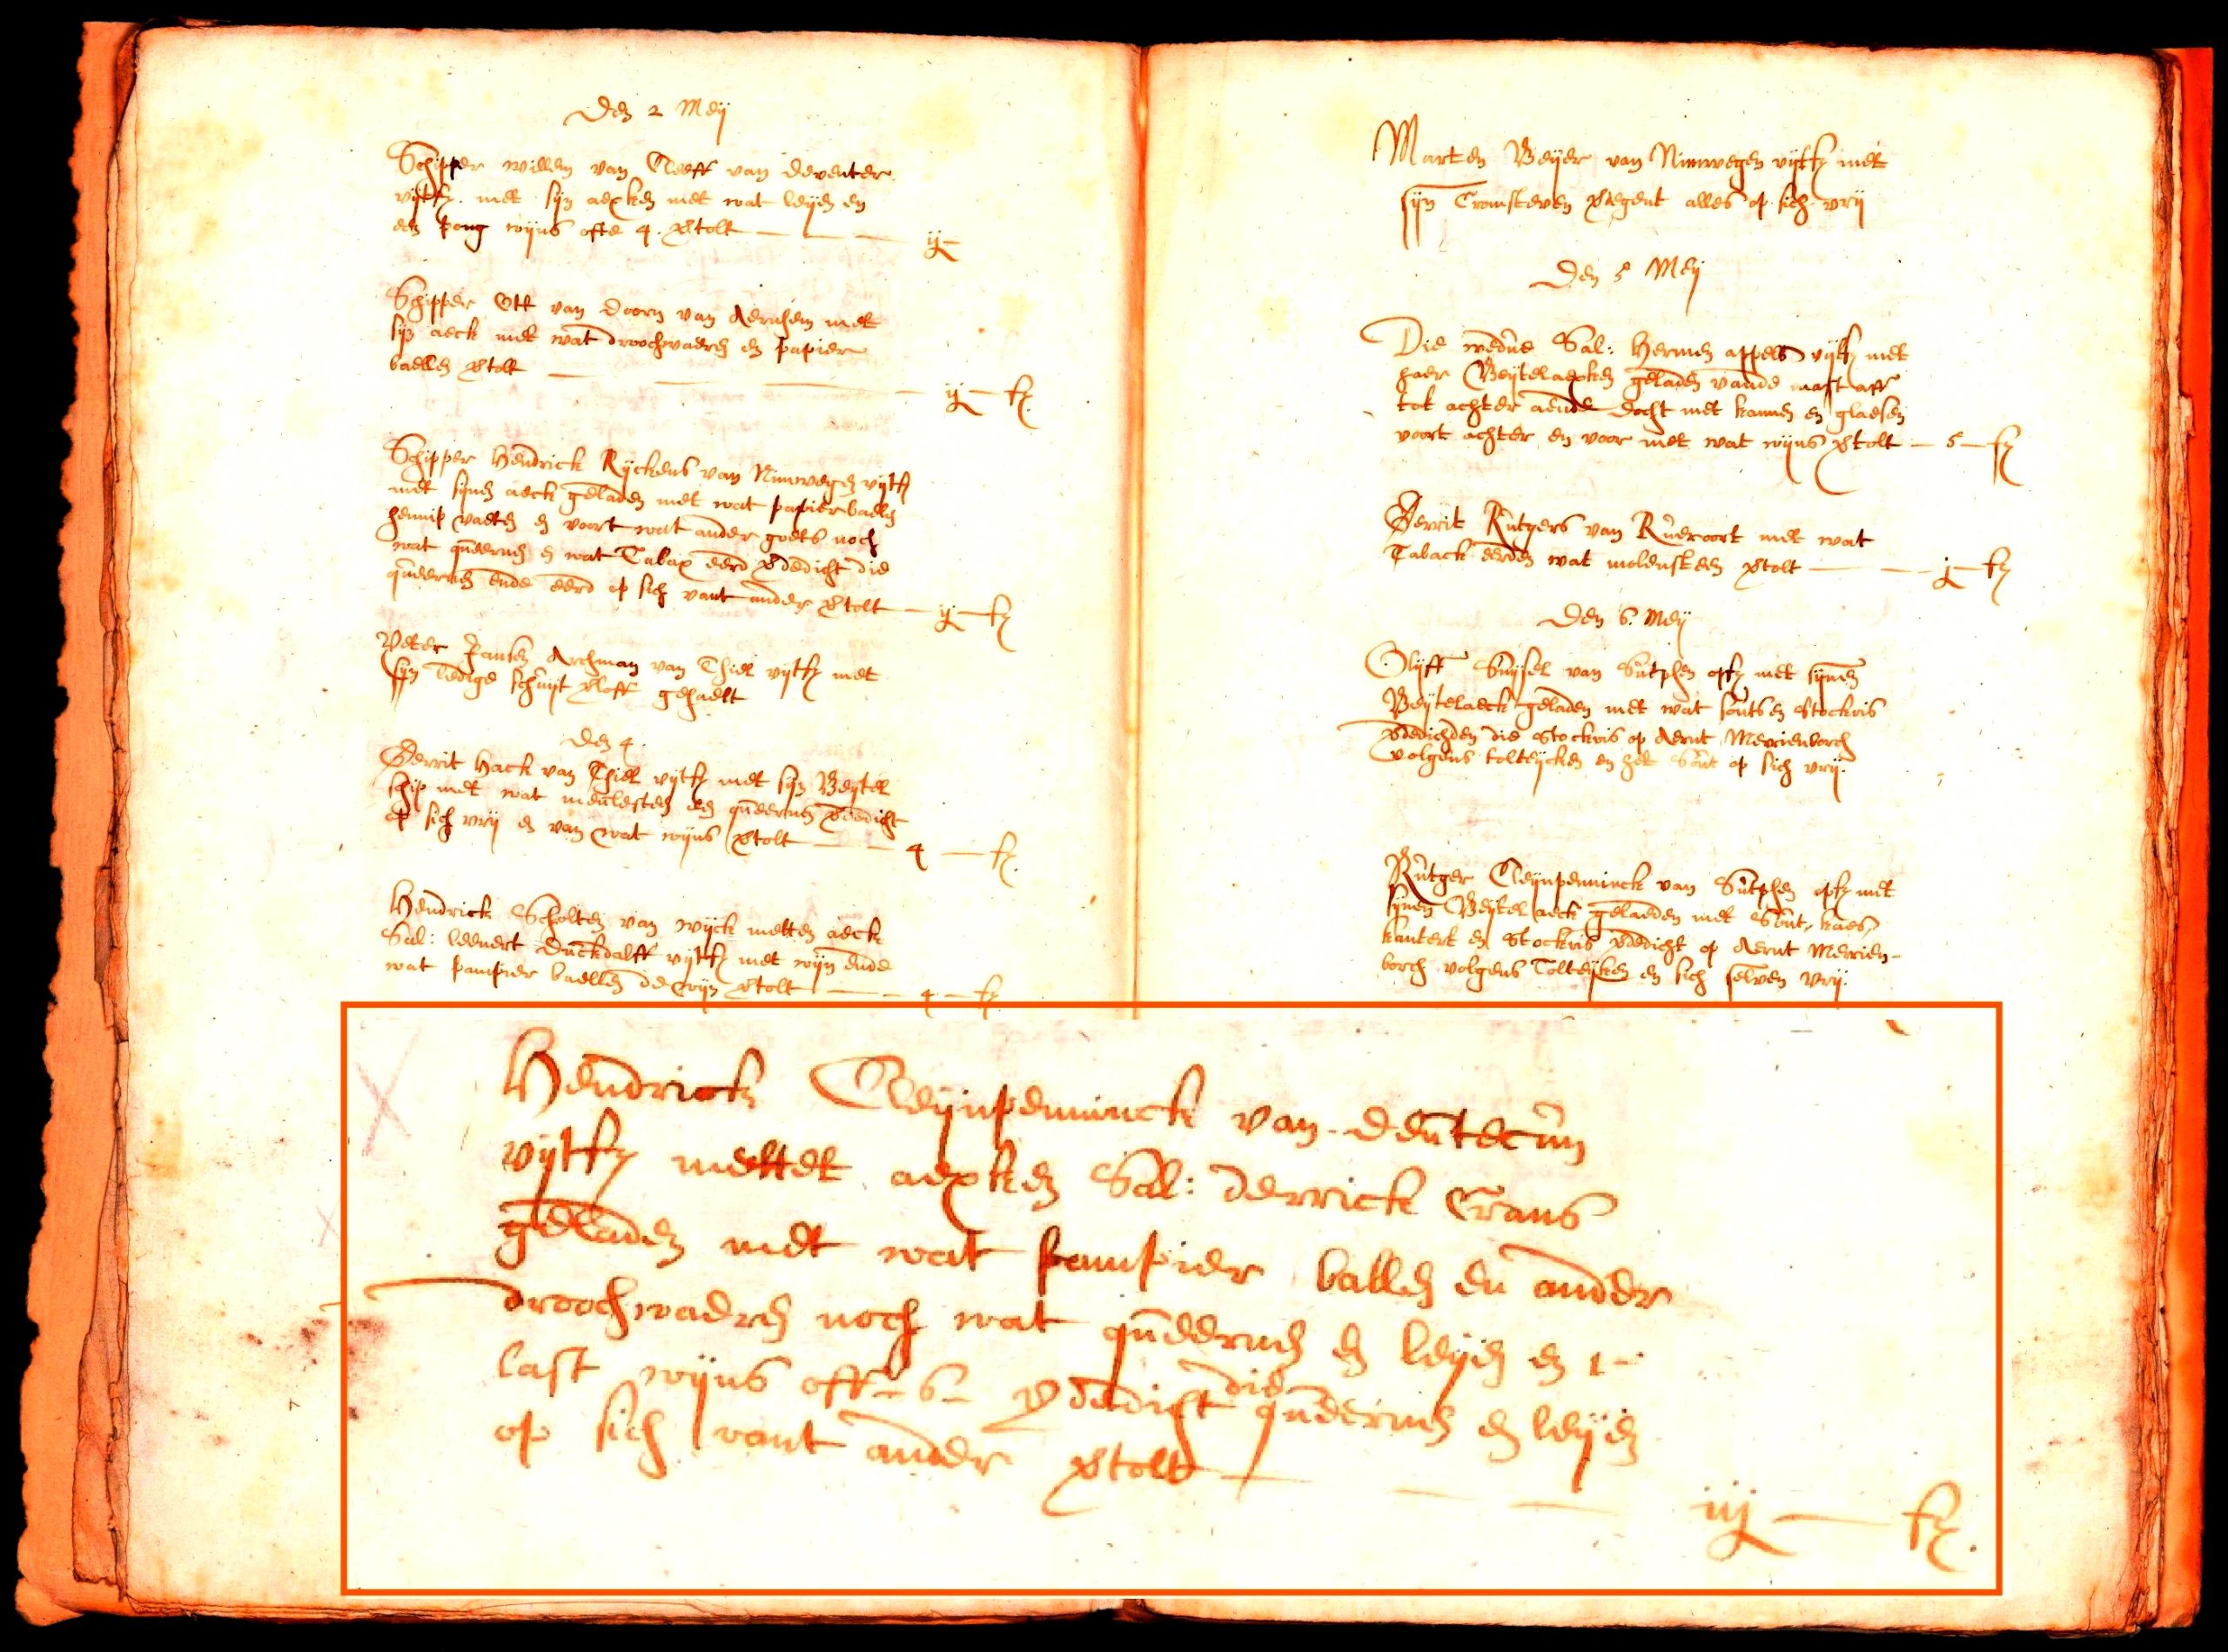 Den 2 Meij
Schipper willem van Cleeff van deventer
vijtf. met sijn aexken met wat leijen en
een pong wijns ofte 4. vtolt ij
Schipper Ott van Doorn van Aernhem met
sijn aeck met wat droochwaeren en papier
baellen vtolt ij fz.
Schipper Hendrick Rijckens van Nimwegen vijtf
met sijnen aeck geladen met wat papierbaelen
hennip vaeten en voort wat ander goets noch
wat querneen en wat Tabax eerd vdedicht die
querneen ende eerd op sich vant ander vtolt ij fz
Peter Jansen Archman van Thiel vijtfz met
sijn ledige schuijt vloff gehaelt
Den 4.
Gerrit Hack van Thiel vijtfz met sijn Beijtel
schip met wat meulesteen en querneen vdedicht
op sich vrij en van wat wijns vtolt 4 fz.
Hendrick Scholten van wijck metten aeck
Sal: leenert Duckdalff vijtfz met wijn ende
wat pampier baellen de wijn vtolt 4 fz
Marten Beijer van Nimwegen vijtfz met
sijn Cromsteven vdegent alles op sich vrij
Den 5 Meij
Die wedue Sal: Hermen appels vijtfz met
haer Beijtelaexken geladen vande mast aff
tot achter aende docht met kannen en glaesen
voort achter en voor met wat wijns vtolt 5 fz
Gerrit Rutgers van Rueroort met wat
Taback eerden wat molensteen vtolt j fz
Den 6. Meij
Olijff Snijsel van Sutphen opfz met sijnen
Beijtelaeck geladen met wat souts en stockvis
vdedichden die stockvis op Aernt Merrienborch
volgens tolteijcken en het Sout op sich vrij.
Rutger Cleijnpenninck van Sutphen opfz met
sijnen Beijtelaeck gelaeden met Sout, kaes,
kantert en stockvis vdedicht op Aernt Merrien-
borch volgens Tolteijken en sich selven vrij.
Hendrick Cleijnpenninck van deutecum
vijtfz mettet aexken Sal: derrick Crans
geladen met wat pampier ballen en ander
droochwaeren noch wat querneen en leijen en 1
last wijns off 6 vdedicht die querneen en leijen
op sich vant ander vtolt iij fz.